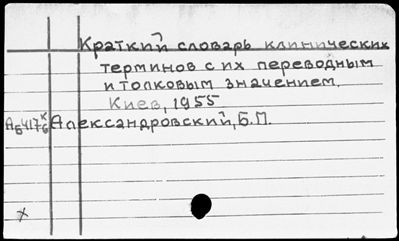 Краткий словарь клинических
терминов с их переводным
и толковым значением.
Киев, 1955
Александровский, Б.П.